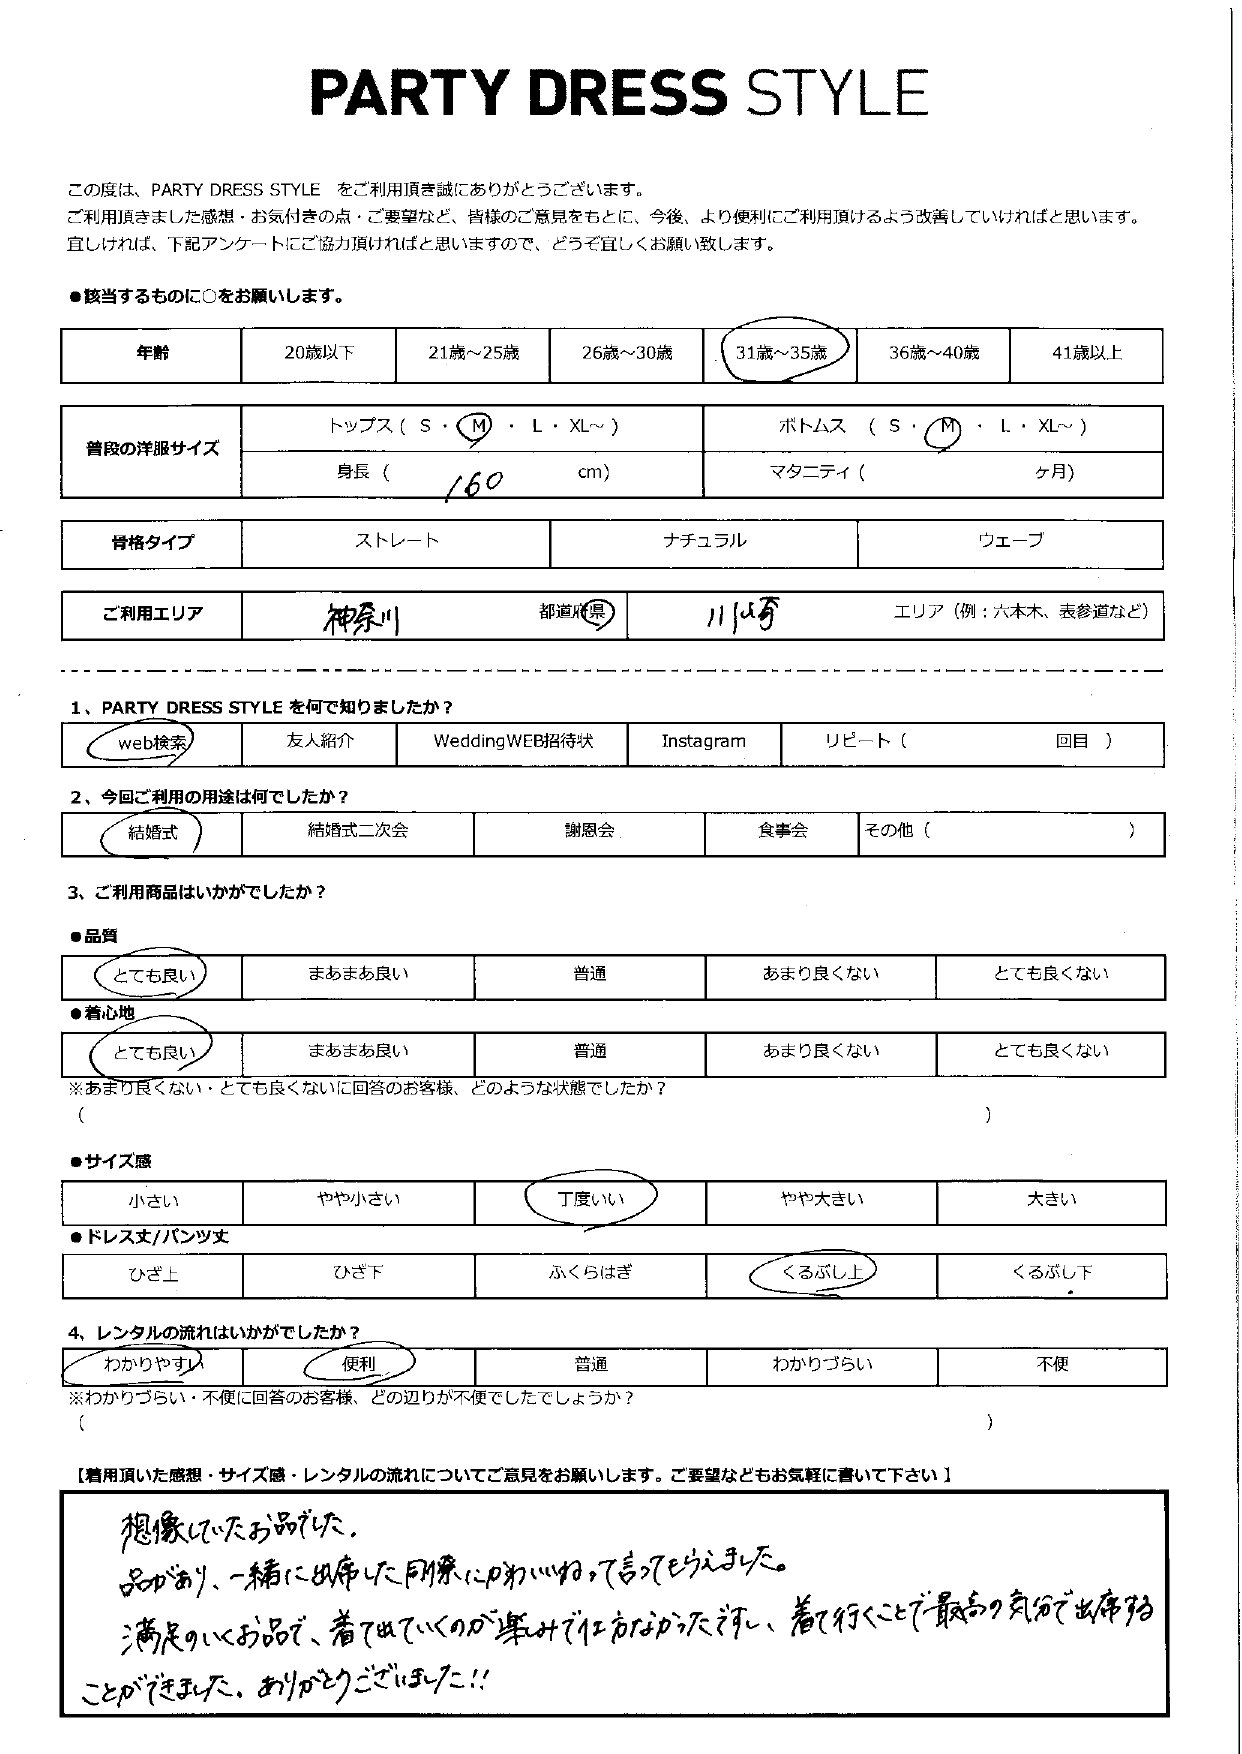 PARTY DRESS STYLE
この度は、PARTY DRESS STYLE　をご利用頂き誠にありがとうございます。
ご利用頂きました感想・お気付きの点・ご要望など、皆様のご意見をもとに、今後、より便利にご利用頂けるよう改善していければと思います。
宜しければ、下記アンケートにご協力頂ければと思いますので、どうぞ宜しくお願い致します。
●該当するものに○をお願いします。
年齢 20歳以下 21歳～25歳 26歳～30歳 31歳～35歳 36歳～40歳 41歳以上
普段の洋服サイズ トップス ( S ・ M ・ L ・ XL～ ) ボトムス ( S ・ M ・ L ・ XL～ )
身長 ( 160 cm) マタニティ ( ヶ月)
骨格タイプ ストレート ナチュラル ウェーブ
ご利用エリア 神奈川 都道府県 川崎 エリア（例：六本木、表参道など）
1、PARTY DRESS STYLE を何で知りましたか？
web検索 友人紹介 WeddingWEB招待状 Instagram リピート ( 回目 )
2、今回ご利用の用途は何でしたか？
結婚式 結婚式二次会 謝恩会 食事会 その他 ( )
3、ご利用商品はいかがでしたか？
●品質
とても良い まあまあ良い 普通 あまり良くない とても良くない
●着心地
とても良い まあまあ良い 普通 あまり良くない とても良くない
※あまり良くない・とても良くないに回答のお客様、どのような状態でしたか？
( )
●サイズ感
小さい やや小さい 丁度いい やや大きい 大きい
●ドレス丈/パンツ丈
ひざ上 ひざ下 ふくらはぎ くるぶし上 くるぶし下
4、レンタルの流れはいかがでしたか？
わかりやすい 便利 普通 わかりづらい 不便
※わかりづらい・不便に回答のお客様、どの辺りが不便でしたでしょうか？
( )
【着用頂いた感想・サイズ感・レンタルの流れについてご意見をお願いします。ご要望などもお気軽に書いて下さい】
想像していたお品でした。
品があり、一緒に出席した同僚にかわいいねって言ってもらえました。
満足のいくお品で、着て出ていくのが楽しみで仕方なかったですし、着て行くことで最高の気分で出席する
ことができました。ありがとうございました!!